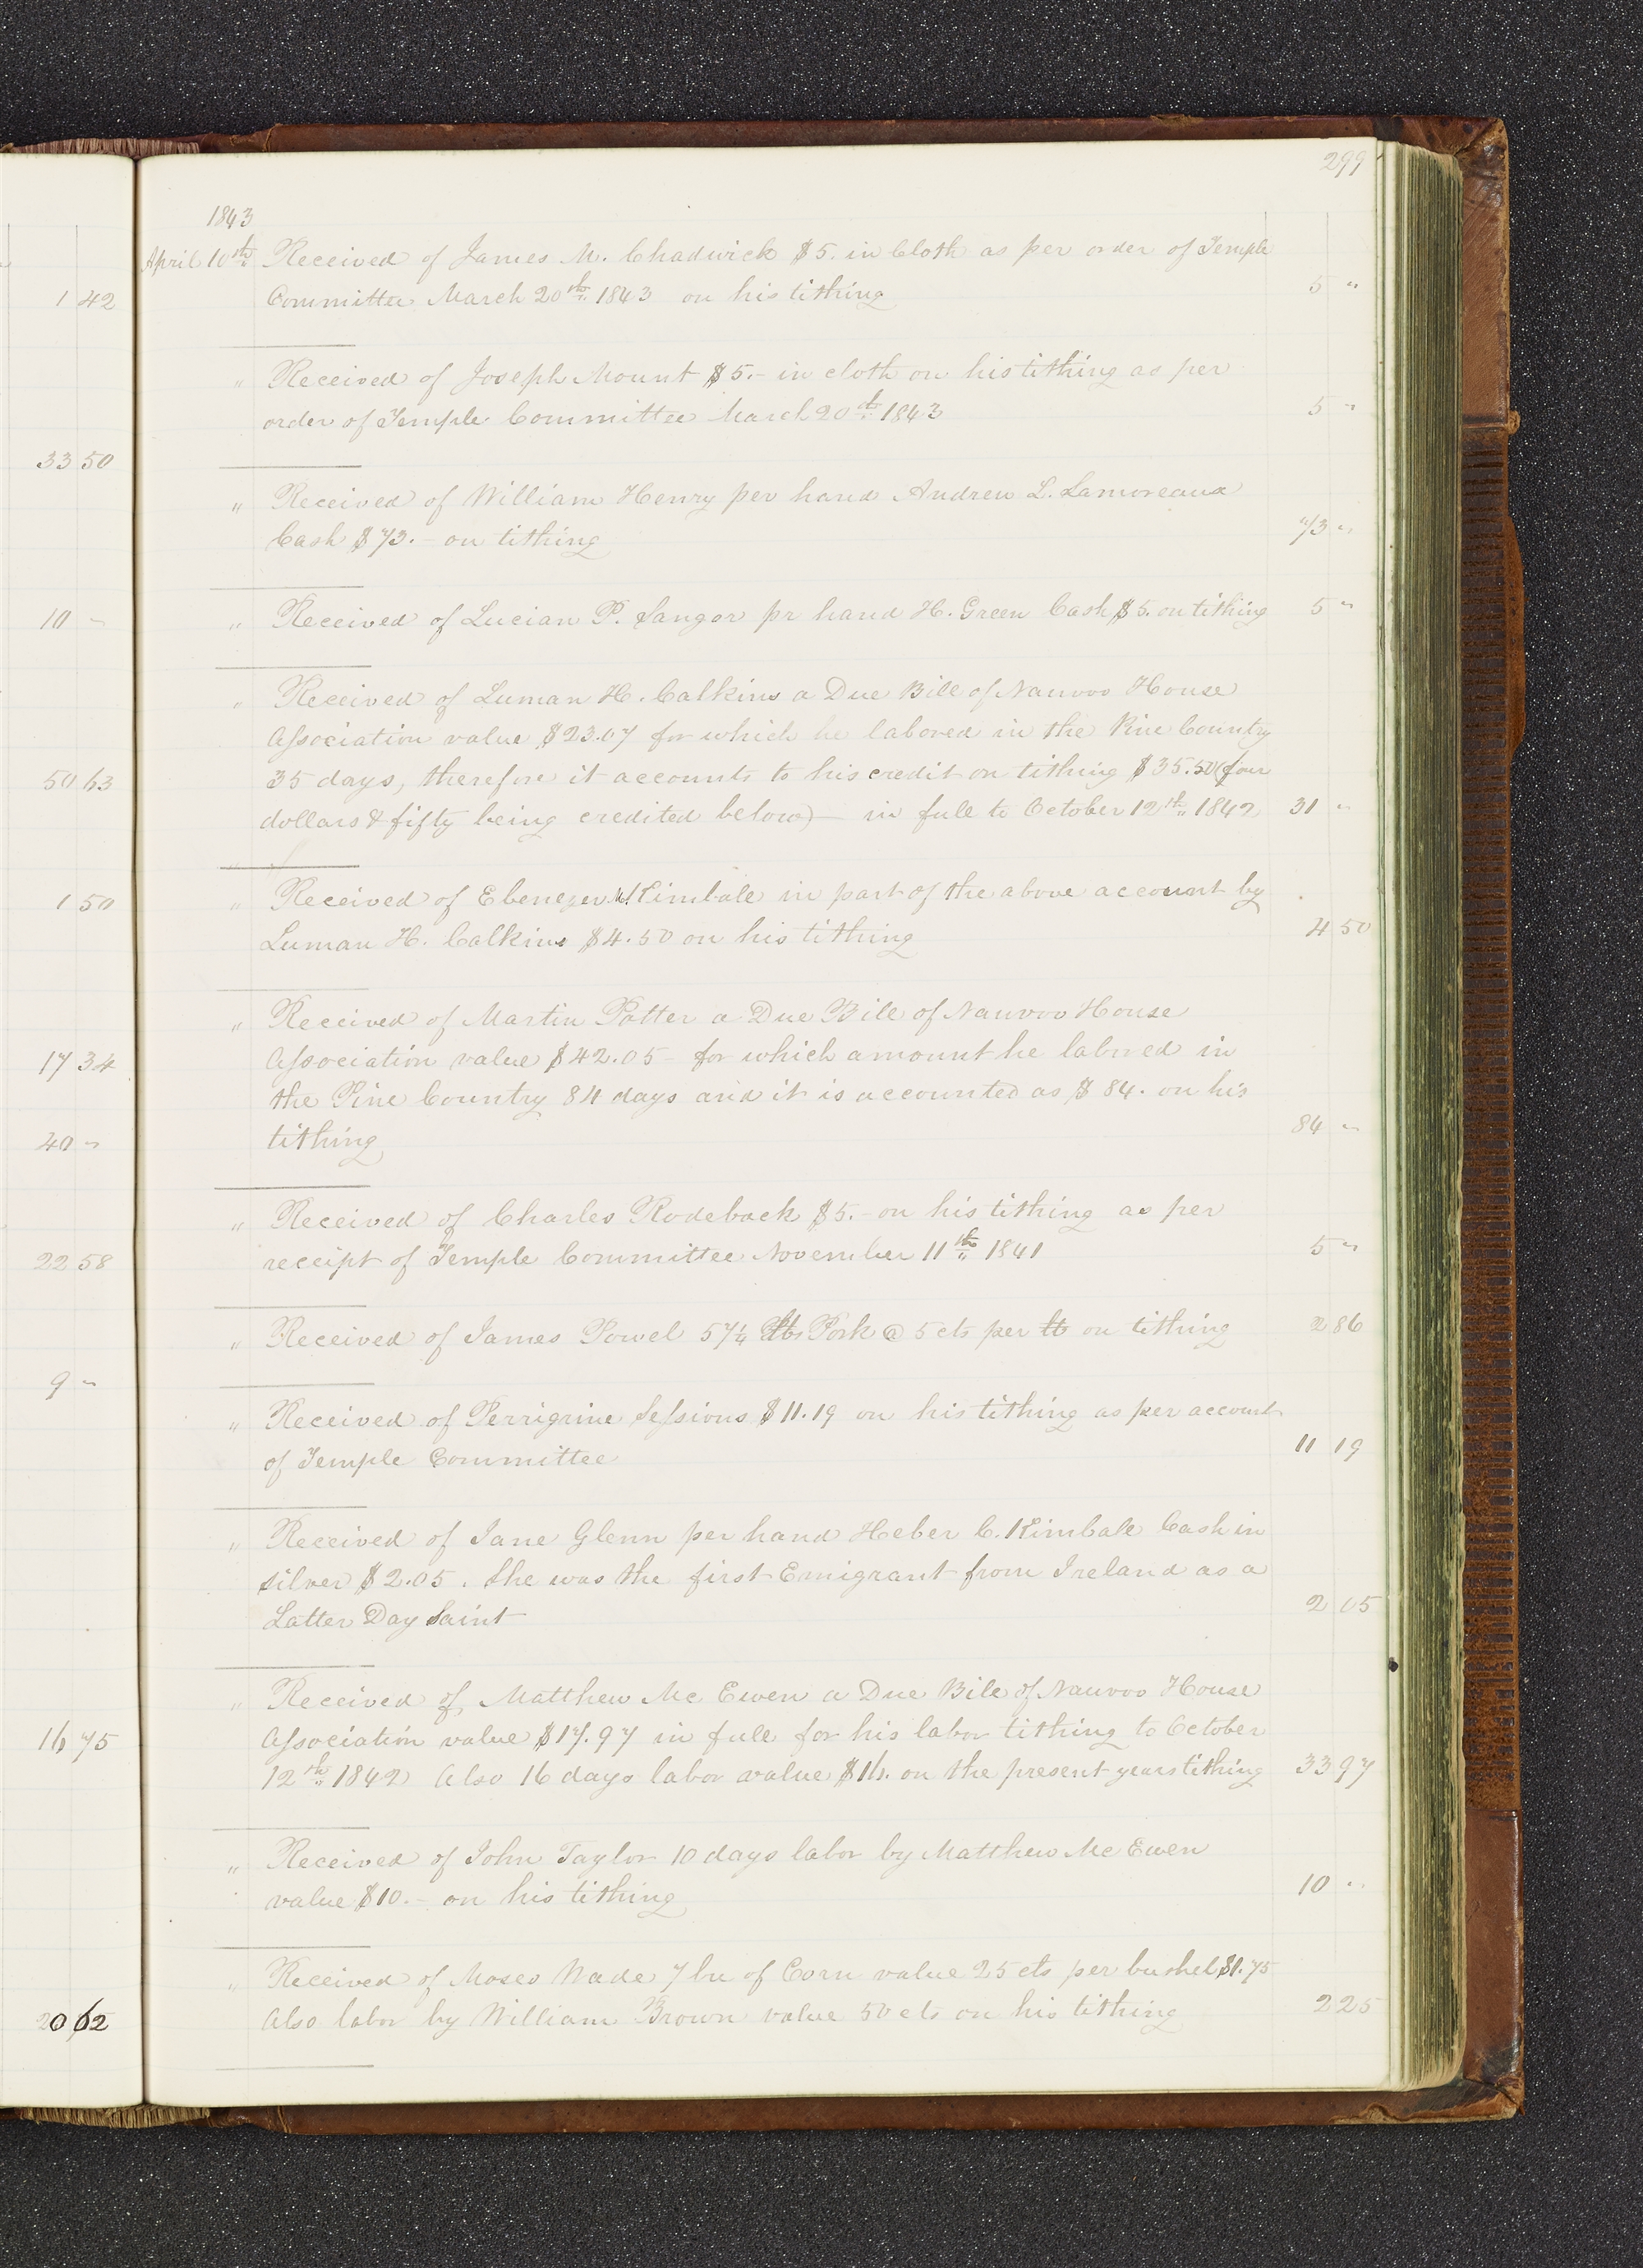 299
1843
April 10th Received of James M. Chadwick $5. in Cloth as per order of Temple
Committee March 20th 1843 on his tithing 5 "
" Received of Joseph Mount $5.- in cloth on his tithing as per
order of Temple Committee March 20th 1843 5 "
" Received of William Henry per hand Andrew L. Lamoreaux
Cash $73.- on tithing 73 "
" Received of Lucian P. Sangor pr hand H. Green Cash $5. on tithing 5 "
" Received of Luman H. Calkins a Due Bill of Nauvoo House
Association value $23.07 for which he labored in the Pine Country
35 days, therefore it accounts to his credit on tithing $35.50 (four
dollars & fifty being credited below) - in full to October 12th 1842 31 "
" Received of Ebenezer Kimball in part of the above account by
Luman H. Calkins $4.50 on his tithing 4 50
" Received of Martin Potter a Due Bill of Nauvoo House
Association value $42.05 - for which amount he labored in
the Pine Country 84 days and it is accounted as $84. on his
tithing 84 "
" Received of Charles Rodeback $5.- on his tithing as per
receipt of Temple Committee November 11th 1841 5 "
" Received of James Powel 57¼ lbs Pork @ 5 cts per lb on tithing 2 86
" Received of Perrigrine Sessions $11.19 on his tithing as per account
of Temple Committee 11 19
" Received of Jane Glenn per hand Heber C. Kimball Cash in
silver $2.05. She was the first Emigrant from Ireland as a
Latter Day Saint 2 05
" Received of Matthew Mc Ewen a Due Bill of Nauvoo House
Association value $17.97 in full for his labor tithing to October
12th 1842 Also 16 days labor value $16. on the present years tithing 33 97
" Received of John Taylor 10 days labor by Matthew Mc Ewen
value $10.- on his tithing 10 "
" Received of Moses Wade 7 bu of Corn value 25 cts per bushel $1.75
Also labor by William Brown value 50 cts on his tithing 2 25
1 42
33 50
10 "
50 63
1 50
17 34
40 "
22 58
9 "
16 75
20 62